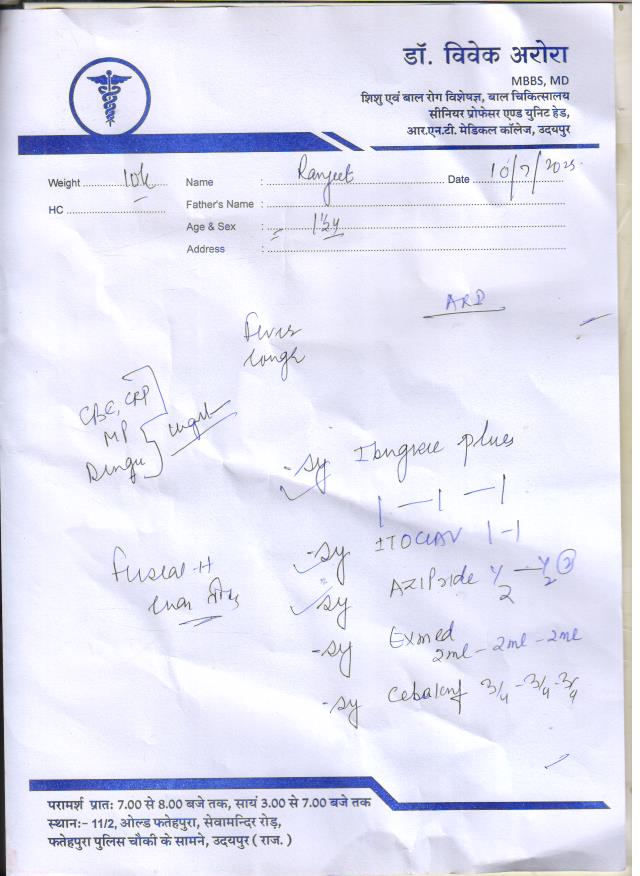 डॉ. विवेक अरोरा
MBBS, MD
शिशु एवं बाल रोग विशेषज्ञ, बाल चिकित्सालय
सीनियर प्रोफेसर एण्ड यूनिट हेड,
आर.एन.टी. मेडिकल कॉलेज, उदयपुर
Weight 10k Name : Ranjeet Date 10/7/2025
HC Father's Name :
Age & Sex : 1½y
Address :
Fever
cough
CBC, CRP
MP
Dengu
urgent
-sy Ibugesic plus
1 — 1 — 1
-sy ITOCLAV 1-1
-sy
-sy Exmed
2ml - 2ml - 2ml
-sy 3/4 - 3/4 - 3/4
परामर्श प्रातः 7.00 से 8.00 बजे तक, सायं 3.00 से 7.00 बजे तक
स्थान:- 11/2, ओल्ड फतेहपुरा, सेवामन्दिर रोड़,
फतेहपुरा पुलिस चौकी के सामने, उदयपुर ( राज. )